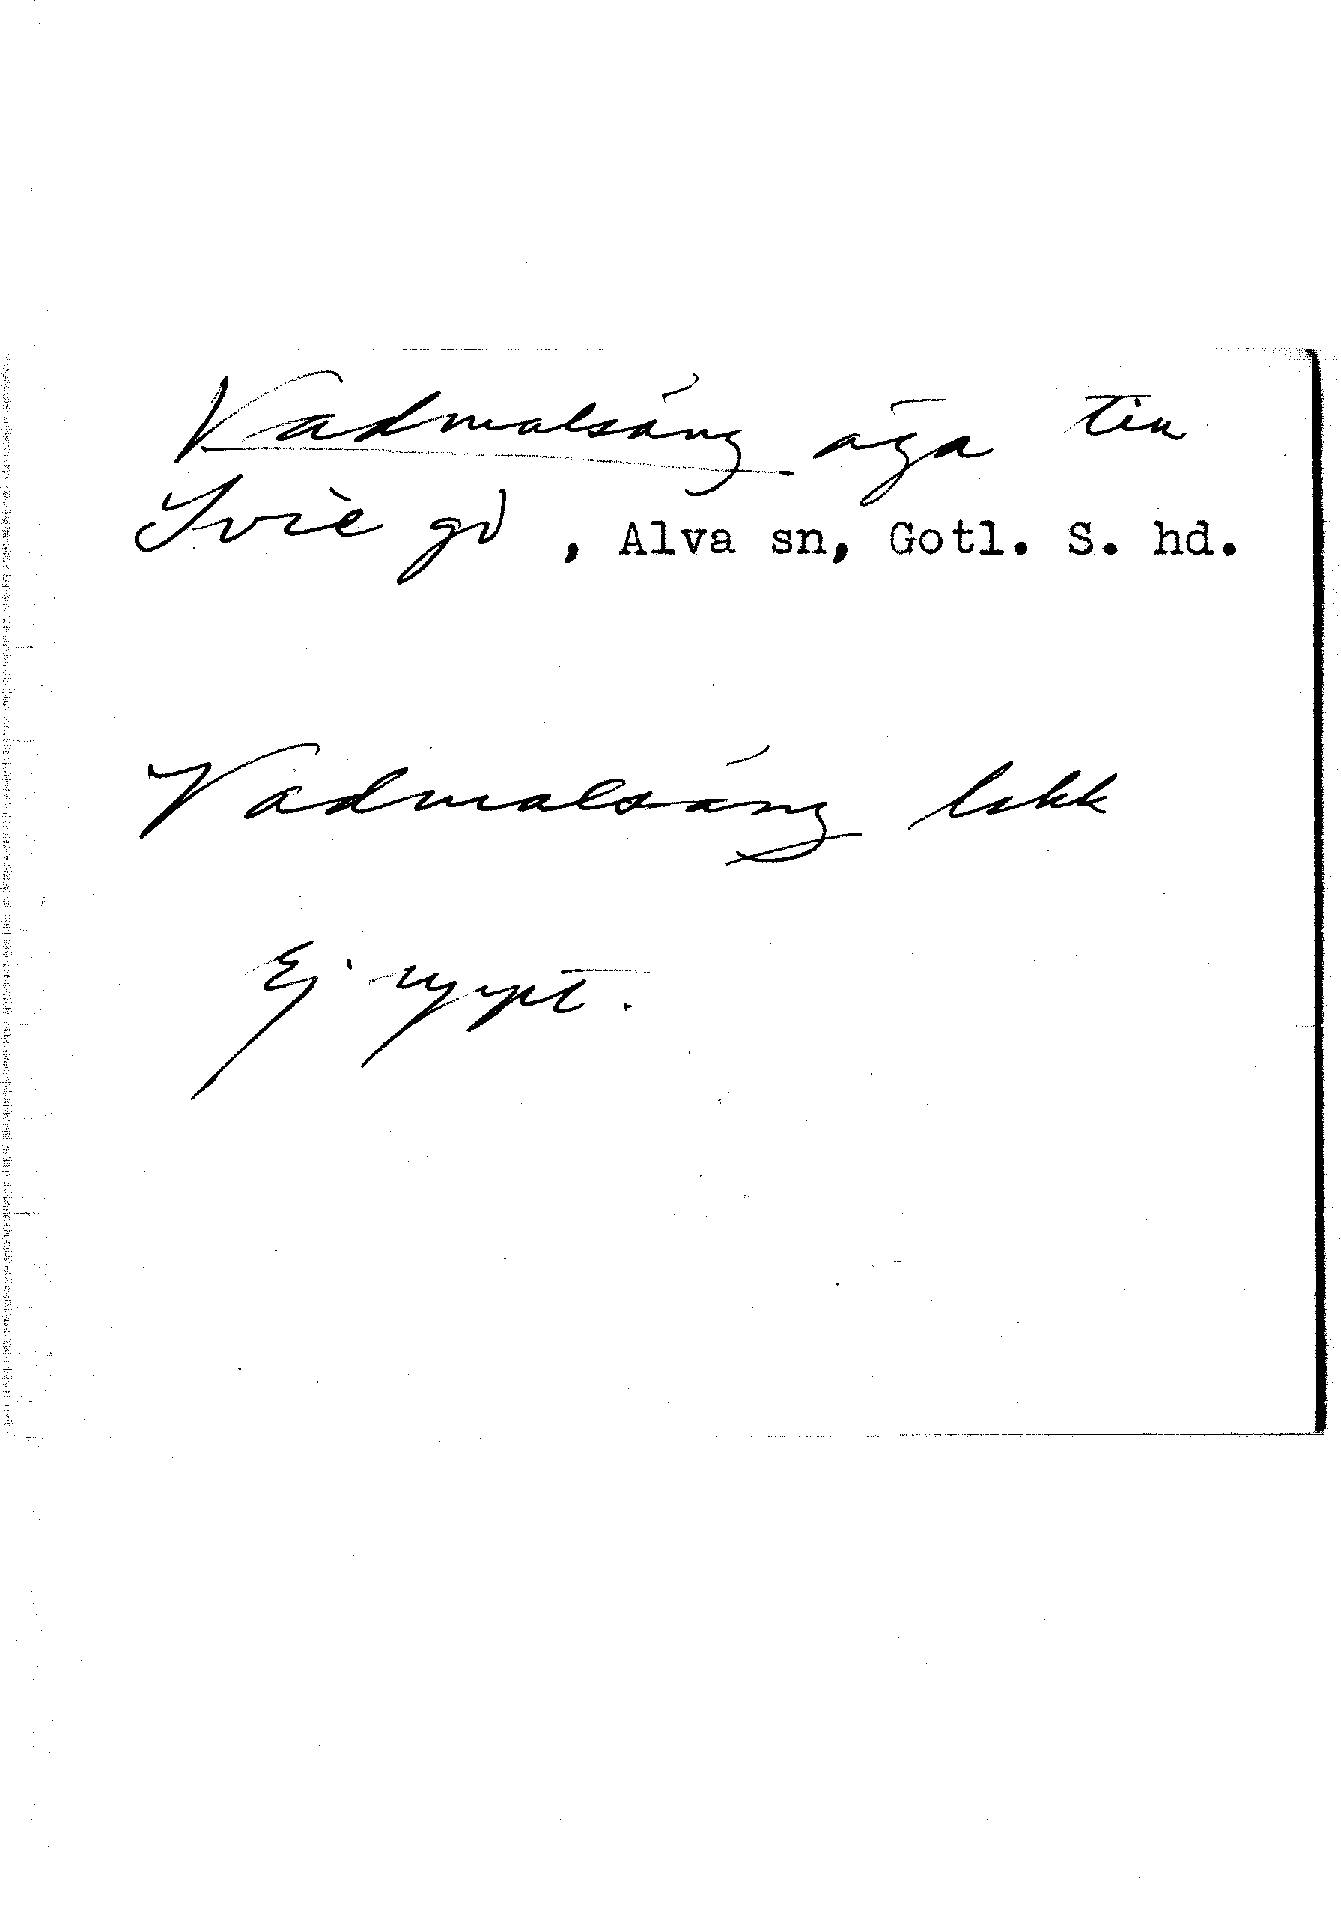 Vadmalsäng äga till
Svie gd, Alva sn, Gotl. S. hd.
Vadmalsäng lokk
Ej nypt.